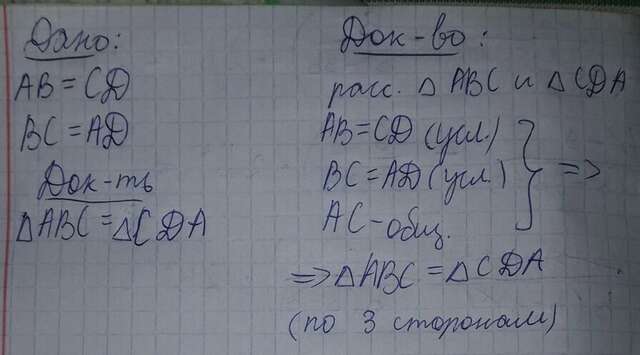 Дано:
AB = CD
BC = AD
Док-ть
△ABC = △CDA
Док-во:
расс. △ ABC и △CDA
AB = CD (усл.)
BC = AD (усл.) } =>
AC - общ.
=> △ABC = △CDA
(по 3 сторонам)